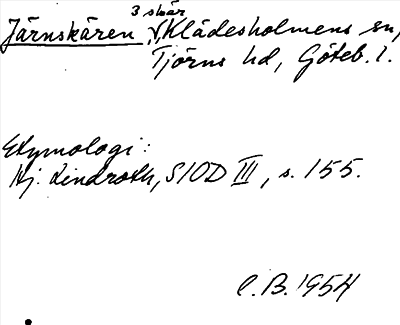 3 skär
Järnskären, Klädesholmens sn,
Tjörns hd, Göteb. l.
Etymologi:
Hj. Lindroth, SIOD III, s. 155.
C.B. 1954